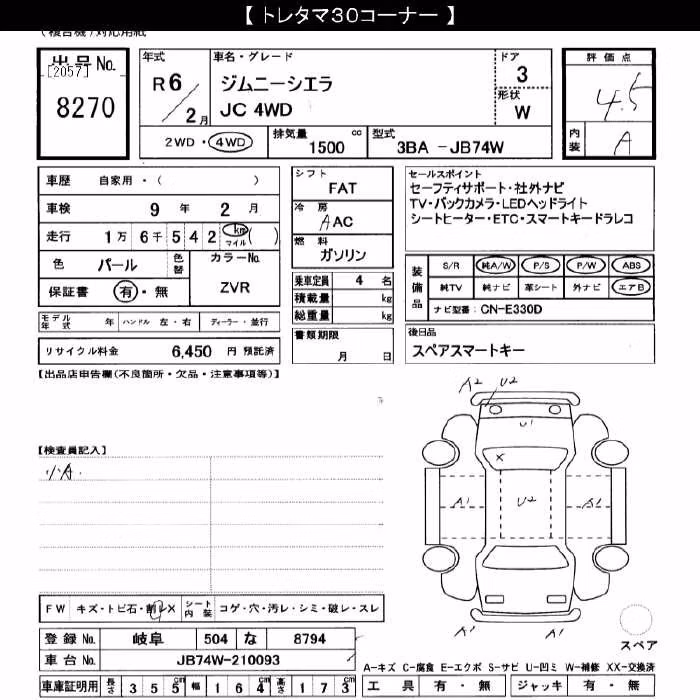 【 トレタマ30コーナー 】
(複合機)対応用紙
出品No. [2057] 8270
年式 R6/2月
車名・グレード ジムニーシエラ JC 4WD
ドア 3
形状 W
2WD・4WD 排気量 1500 cc 型式 3BA -JB74W
評価点 4.5
内装 A
車歴 自家用・( )
車検 9年 2月
走行 1万 6千 5 4 2 km マイル ( )
色 パール 色替 カラーNo. ZVR
保証書 有・無
モデル年式 年 ハンドル 左・右 ディーラー・並行
リサイクル料金 6,450 円 預託済
シフト FAT
冷房 AAC
燃料 ガソリン
乗車定員 4 名
積載量 kg
総重量 kg
書類期限 月 日
セールスポイント
セーフティサポート・社外ナビ
TV・バックカメラ・LEDヘッドライト
シートヒーター・ETC・スマートキードラレコ
装備品 S/R 純A/W P/S P/W ABS
純TV 純ナビ 革シート 外ナビ エアB
ナビ型番: CN-E330D
後日品
スペアスマートキー
【出品店申告欄(不良箇所・欠品・注意事項等)】
【検査員記入】
A2 U2
U1
X
A1 U2 A1
A1 A1
スペア
FW キズ・トビ石・割レX シート内装 コゲ・穴・汚レ・シミ・破レ・スレ
登録No. 岐阜 504 な 8794
車台No. JB74W-210093
A-キズ C-腐食 E-エクボ S-サビ U-凹ミ W-補修 XX-交換済
車庫証明用 長さ 355cm 幅 164cm 高さ 173cm
工具 有・無 ジャッキ 有・無